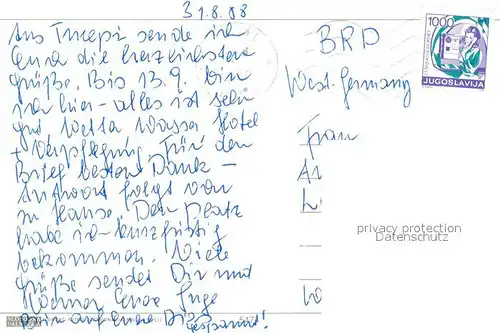 31.8.88
Aus Tucepi sende ich
Euch die herzlichsten
Grüße. Bis 13.9. bin
ich hier - alles ist sehr
gut Wetter Wasser Hotel
+ Verpflegung. Für den
Brief besten Dank -
Antwort folgt von
zu Hause. Den Platz
habe ich kurzfristig
bekommen. Viele
Grüße sendet Dir und
Euere Inge
Bin auf Euere
gespannt!
BRD
West-Germany
Frau
privacy protection
Datenschutz
1000
JUGOSLAVIJA